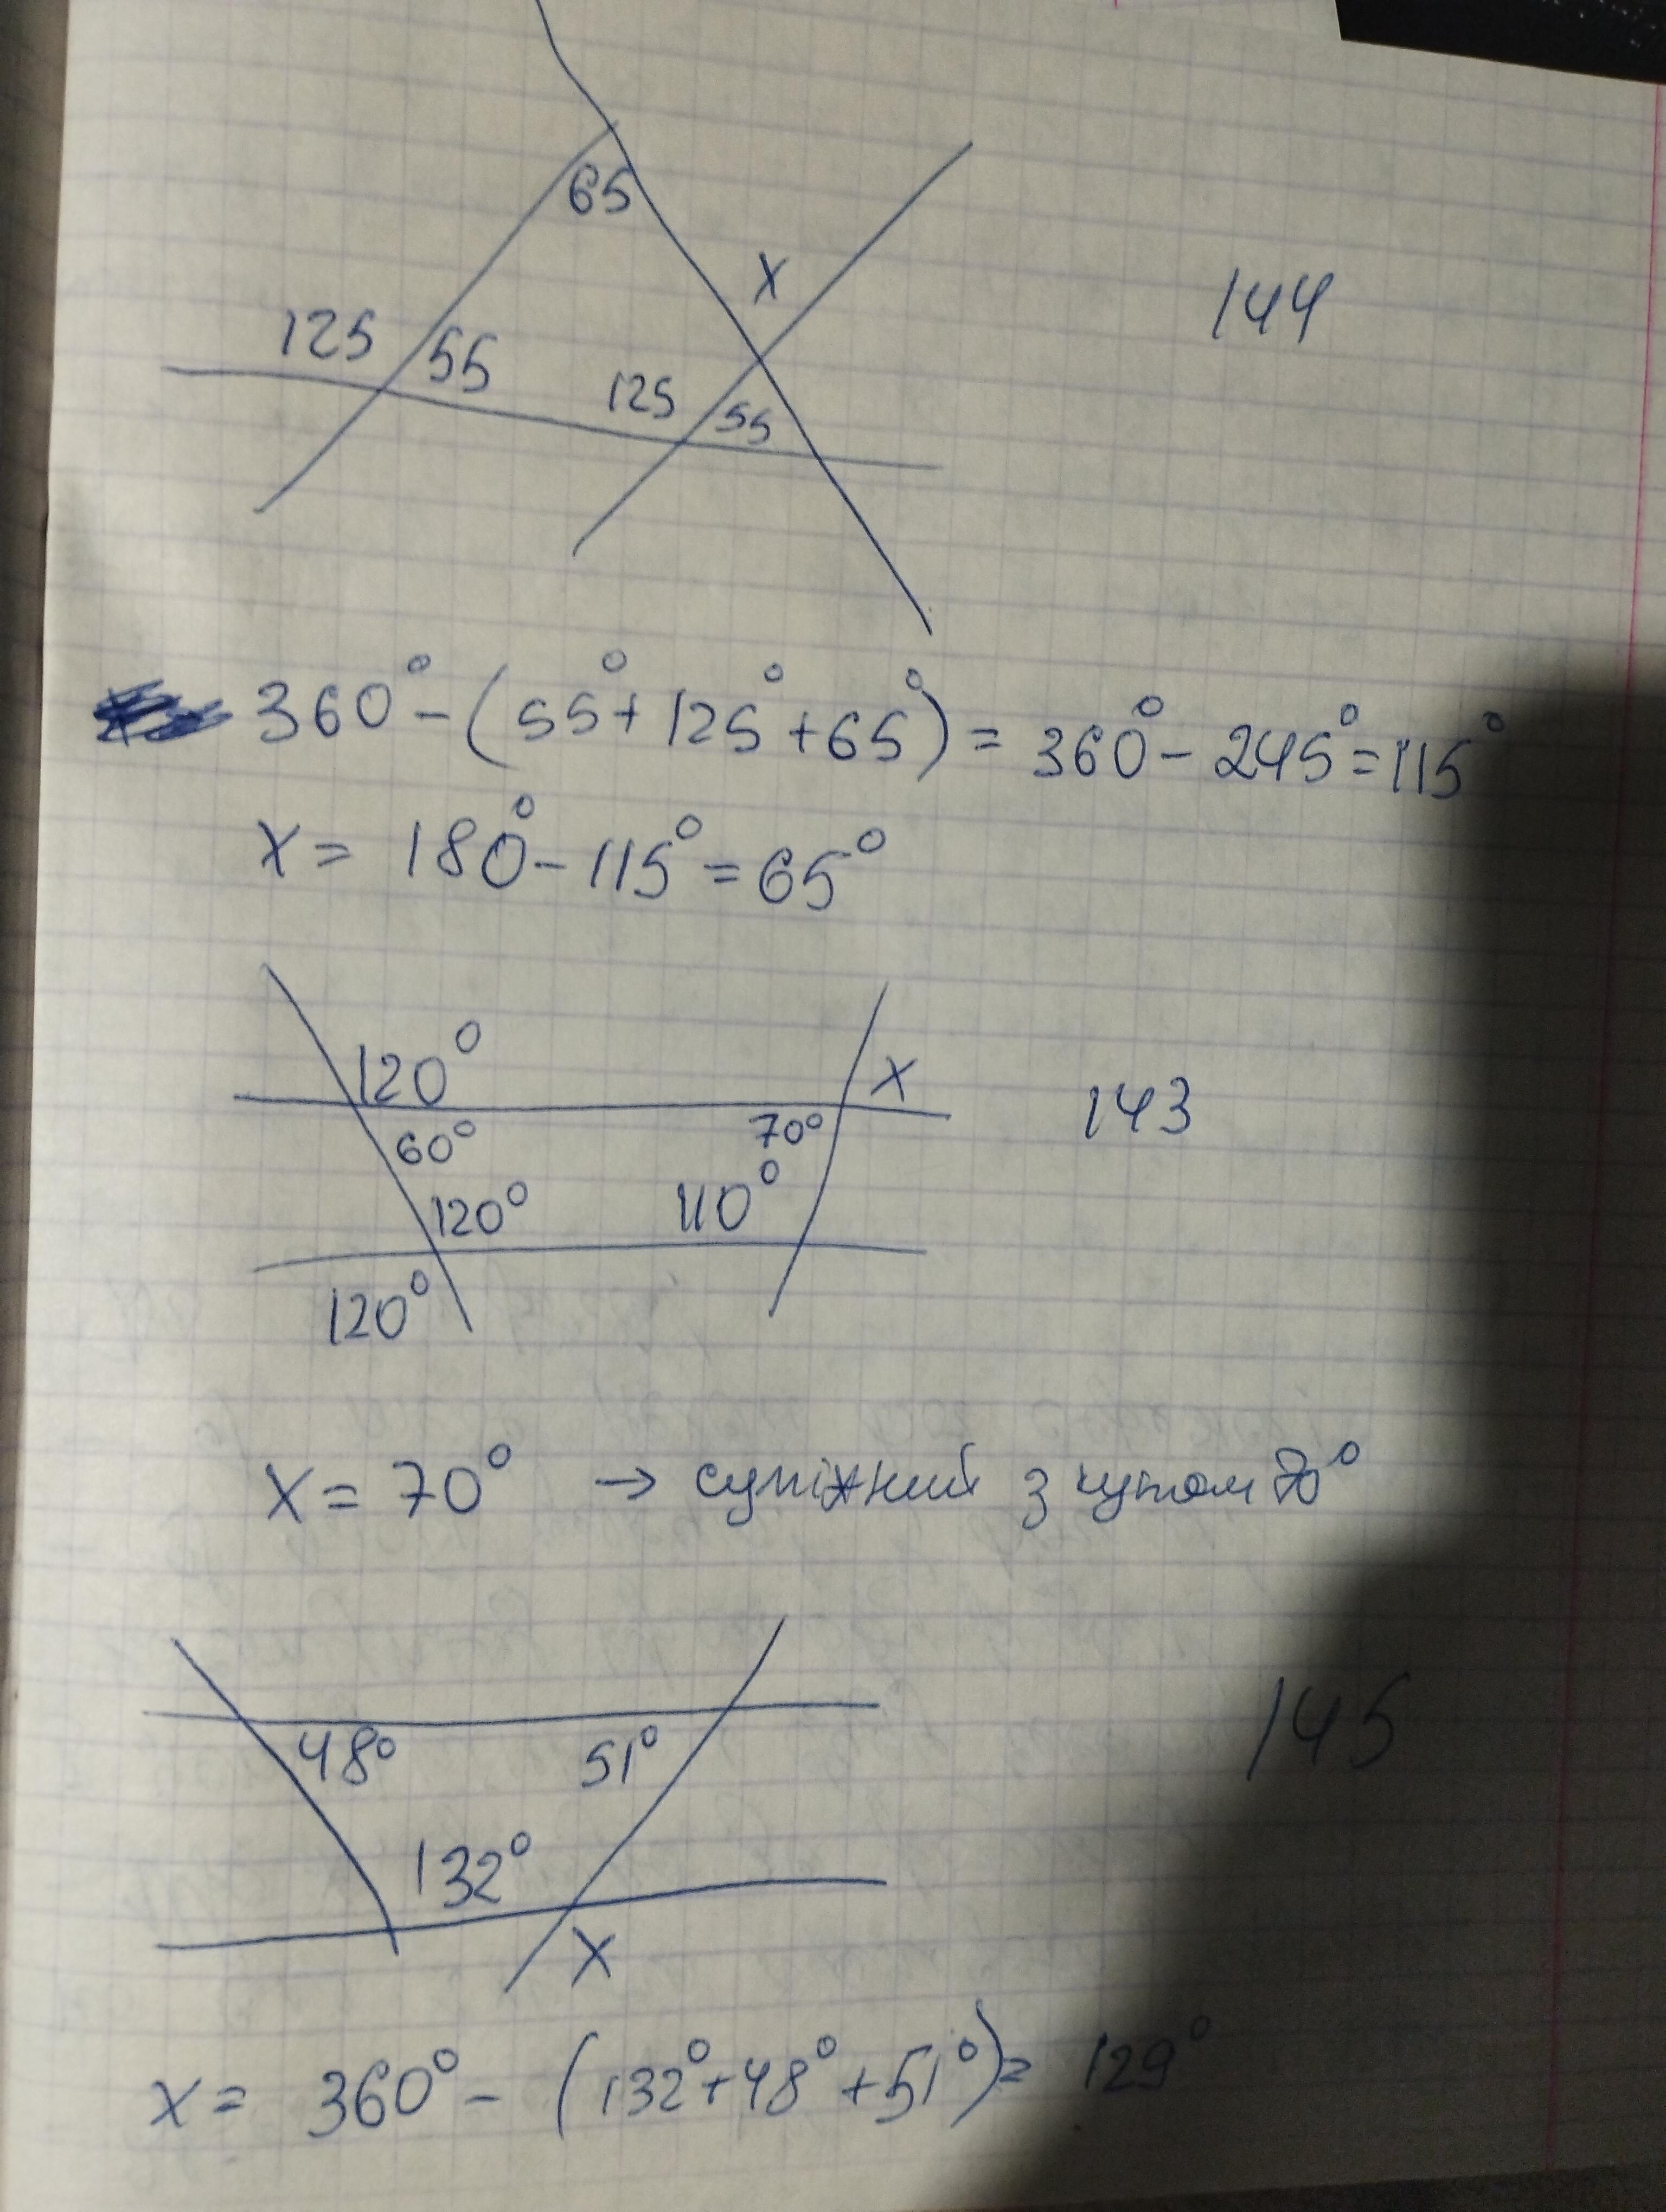 65
X
144
125 55
125 55
360° - (55° + 125° + 65°) = 360° - 245° = 115°
X = 180° - 115° = 65°
120° X
143
60° 70°
120° 110°
120°
X = 70° → суміжний з кутом 70°
145
48° 51°
132°
X
X = 360° - (132° + 48° + 51°) = 129°